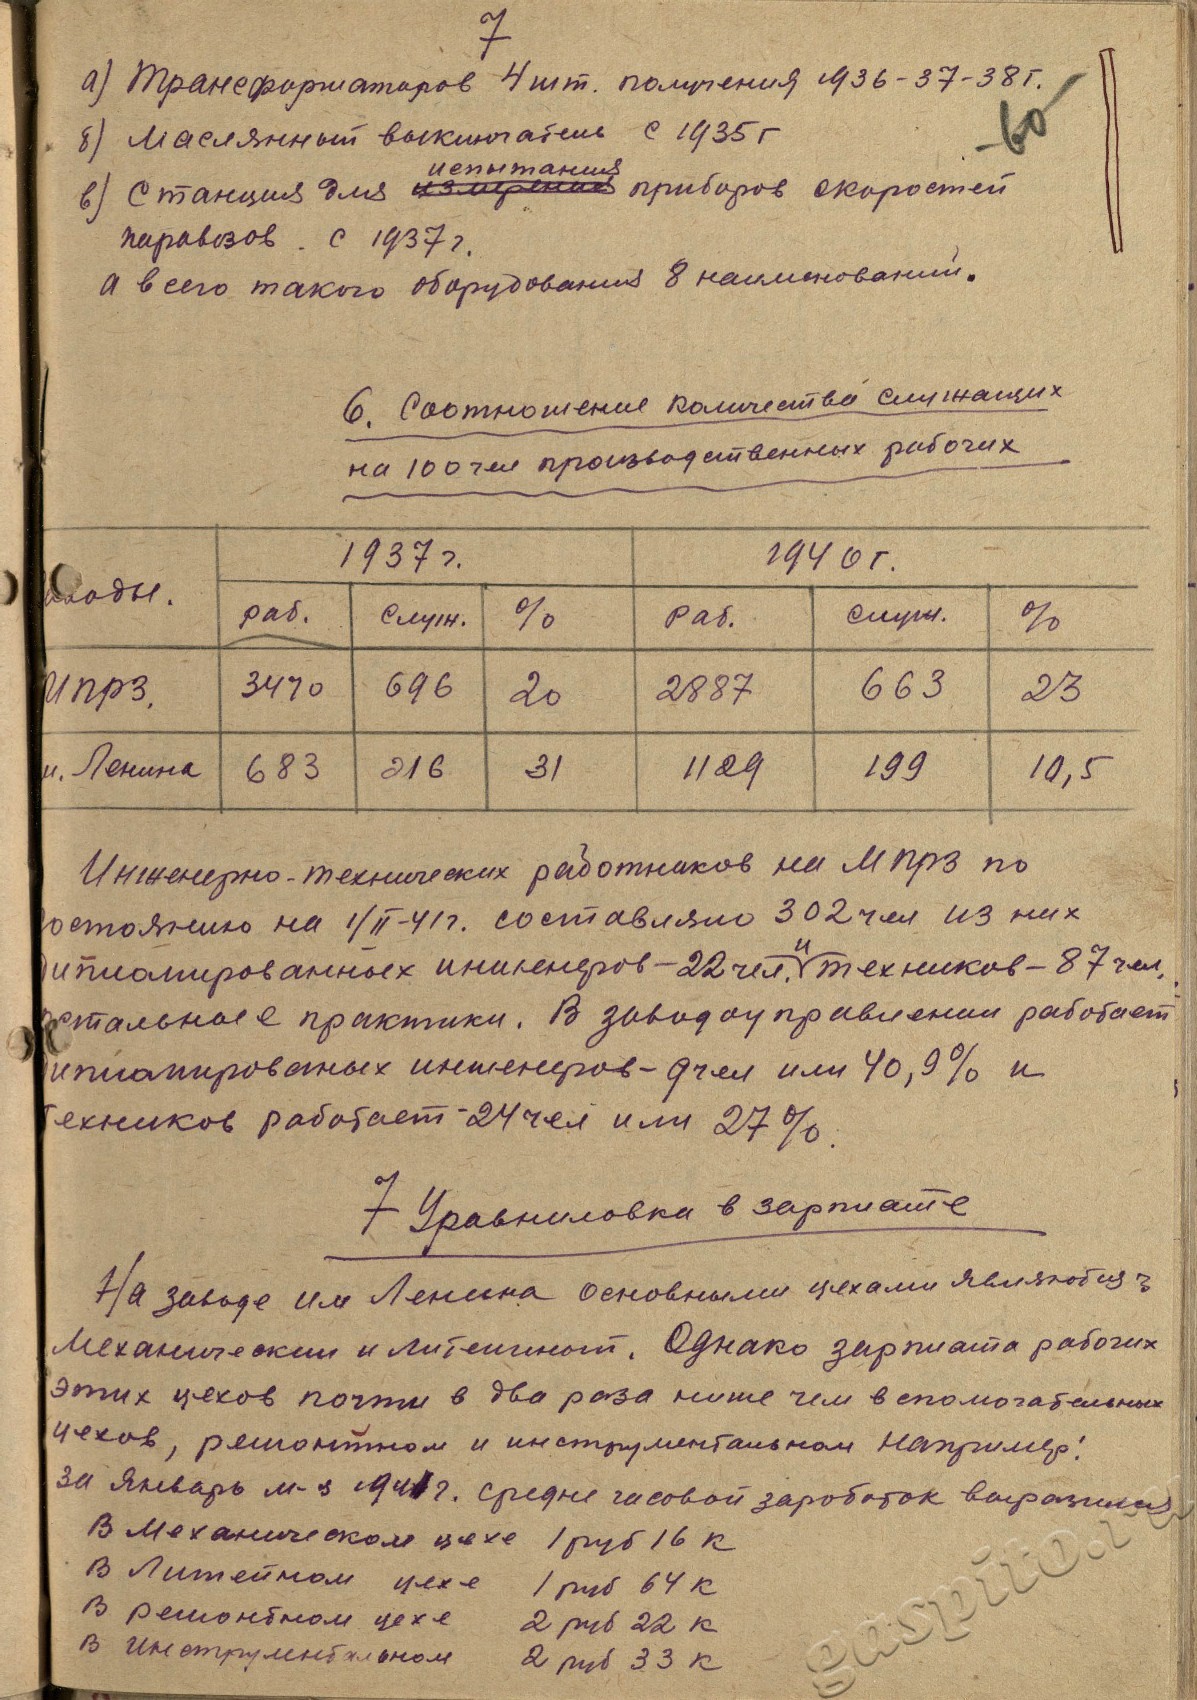 7
а) Трансформаторов 4 шт. получения 1936-37-38 г.
-60
б) Маслянный выключатель с 1935 г
испытания
в) Станция для измерения приборов скоростей
паровозов. с 1937 г.
а всего такого оборудования 8 наименований.
6. Соотношение количества служащих
на 100 чел производственных рабочих
1937 г. 1940 г.
аводы. раб. служ. % Раб. служ. %
МПРЗ. 3470 696 20 2887 663 23
и. Ленина 683 216 31 1129 199 10,5
Инженерно-технических работников на МПРЗ по
остоянию на 1/II-41 г. составляло 302 чел из них
ипломированных инженеров - 22 чел. и техников - 87 чел.
стальные практики. В заводоуправлении работает
ипломированых инженеров - 9 чел или 40,9% и
ехников работает - 24 чел или 27%.
7 Уравниловка в зарплате
На заводе им Ленина основными цехами являются
механический и литейный. Однако зарплата рабочих
этих цехов почти в два раза ниже чем вспомогательных
цехов, ремонтном и инструментальном например:
за январь м-ц 1941 г. средне часовой зароботок выразился
В Механическом цехе 1 руб 16 к
В Литейном цехе 1 руб 64 к
В ремонтном цехе 2 руб 22 к
В инструментальном 2 руб 33 к
gaspito.ru